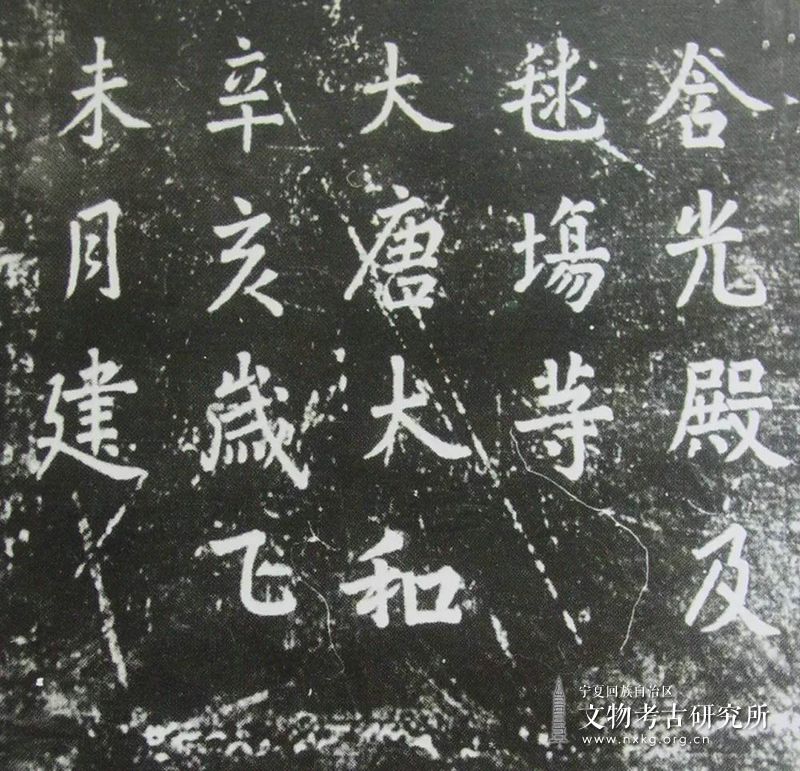 含光殿及
毬塲等
大唐大和
辛亥歲乙
未月建
宁夏回族自治区
文物考古研究所
www.nxkg.org.cn